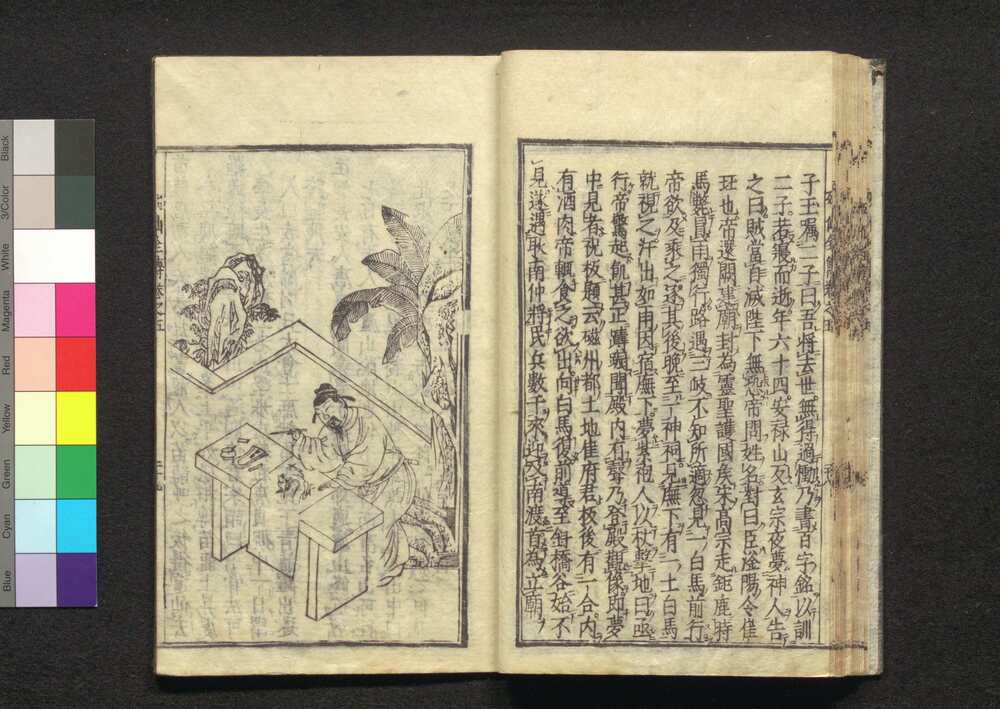 子玉囑二子曰吾將去世無得過慟乃書百字銘以訓
二子若寢而逝年六十四安祿山反玄宗夜夢神人告
之曰賊當自滅陛下無恐帝問姓名對曰臣滏陽令崔
珏也帝還闕建廟封為靈聖護國矦宋高宗走鉅鹿時
馬斃冒雨獨行路遇三岐不知所適忽見一白馬前行
帝欲及乘之遂其後晚至一神祠見廡下有一土白馬
就視之汗出如雨因宿廡下夢紫袍人以杖擊地曰亟
行帝驚起飢甚正躊躇聞殿内有聲乃登殿觀像即夢
中見者祝板題云磁州都土地崔府君板後有一合内
有酒肉帝輒食之欲出向白馬復前導至斜橋谷始不
見遂遇耿南仲將民兵數千來迎及南渡首為立廟
Black
3/Color
White
Magenta
Red
Yellow
Green
Cyan
Blue